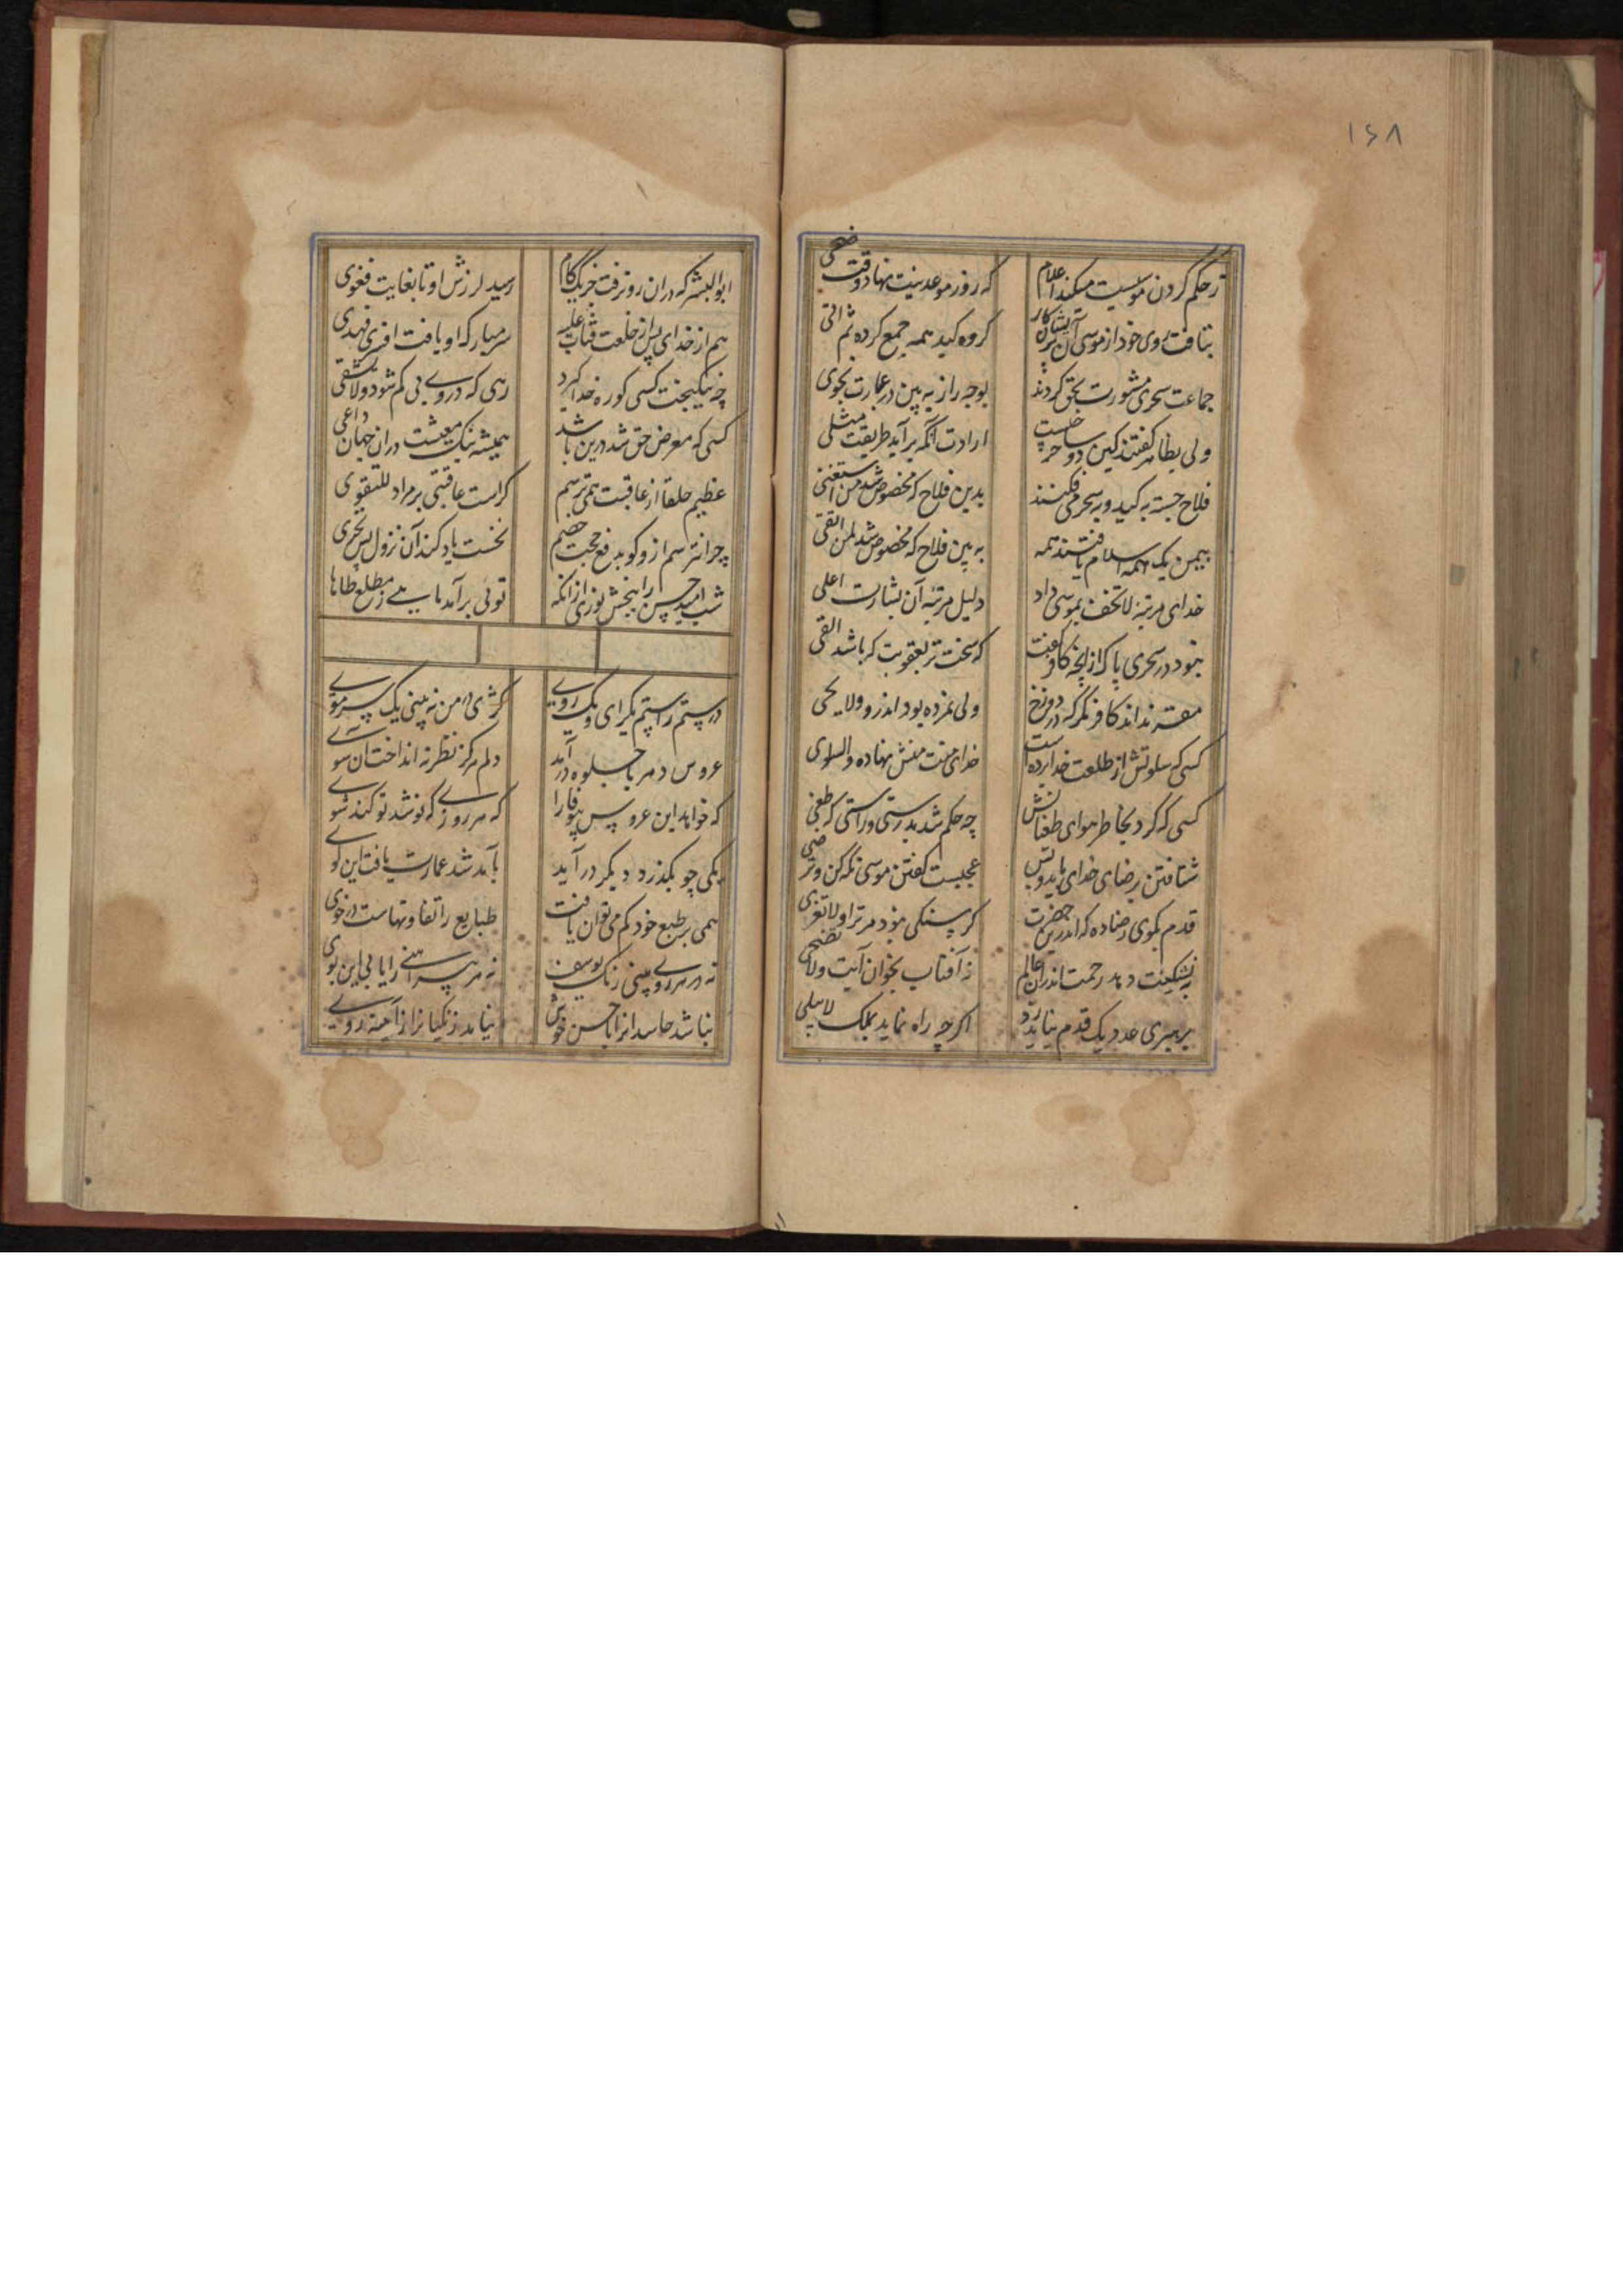 ۱۶۸
ز حکم کردن موسیست میکند اعلام
که روز موعد نیت نهاد وقت ضحی
بتافت روی خود از موسی آن
گروه کید همه جمع کرده ثم اتی
جماعت سحری مشورت بحق کردند
بوجه راز به بین در عبارت نجوی
ولی بظاهر گفتند کین دو ساحر چیست
ارادت آنکه برآید طریقت مثلی
فلاح جسته به کید و به سحر می فکنند
بدین فلاح که مخصوص شد من استعنی
بیمن یک همه اسلام یافتند همه
به بین فلاح که مخصوص شد لمن القی
خدای مرتبه لا تخف بموسی داد
دلیل مرتبه آن بشارت اعلی
نبود در سحری پاک از آنچه کافر گفت
که سخت تر بعقوبت که باشد القی
مقر نداند کافر مگر که در دوزخ
ولی نمرده بود اندرو ولا یحیی
کسی که سلوتش از طلعت خدا بردست
خدای منت منش نهاده والسلوی
کسی که کرد بخاطر هوای طغیانش
چه حکم شد بدرستی و راستی که طغی
شتافتن برضای خدای باید و بس
عجیبست گفتن موسی نگه کن و ترضی
قدم بکوی رضا ده که اندرین حضرت
گرسنگی نبود مر ترا و لا تعری
به تشنگیت دهد رحمت اندران عالم
ز آفتاب بخوان آیت ولا تضحی
برهبری عدو یک قدم نباید زد
اگرچه راه نماید بملک لا یبلی
ابوالبشر که دران ره نرفت جز یک گام
رسید لرزش او تا بغایت فغوی
هم از خدای پس از خلعت فتاب علیه
سر مبارک او یافت افسری فهدی
چه نیکبخت کسی کو ره خدا گیرد
رهی که در وی بی گم شود ولا یشقی
کسی که معرض حق شد درین باشد
همیشه تنگ معیشت دران جهان اعمی
عظیم خلقا از عاقبت همی ترسم
کراست عاقبتی بر مراد للتقوی
چرا نترسم ازو کو بدفع حجت خصم
نخست یاد کند آن نزول پس نخزی
شب امید حسن را ببخش نوری ازانکه
توئی برآمد ماهی ز مطلع طاها
درستم راستم یکرای و یک روی
کژی در من نه بینی یک سر موی
عروس دهر با جلوه درآمد
دلم هرگز نظر نه انداخت آن سوی
که خواهد این عروس بیوفا را
که هر روزی که نو شد نو کند شوی
یکی چو بگذرد دیگر درآید
بآمد شد عمارت یافت این کوی
همی بر طبع خود کم می توان یافت
طبایع را تفاوتهاست در خوی
نه در هر روی بینی رنگ یوسف
نه هر پیراهنی را یابی این بوی
نباشد حاسدانرا با حسن خوش
نیاید زنگیانرا ز آینه روی